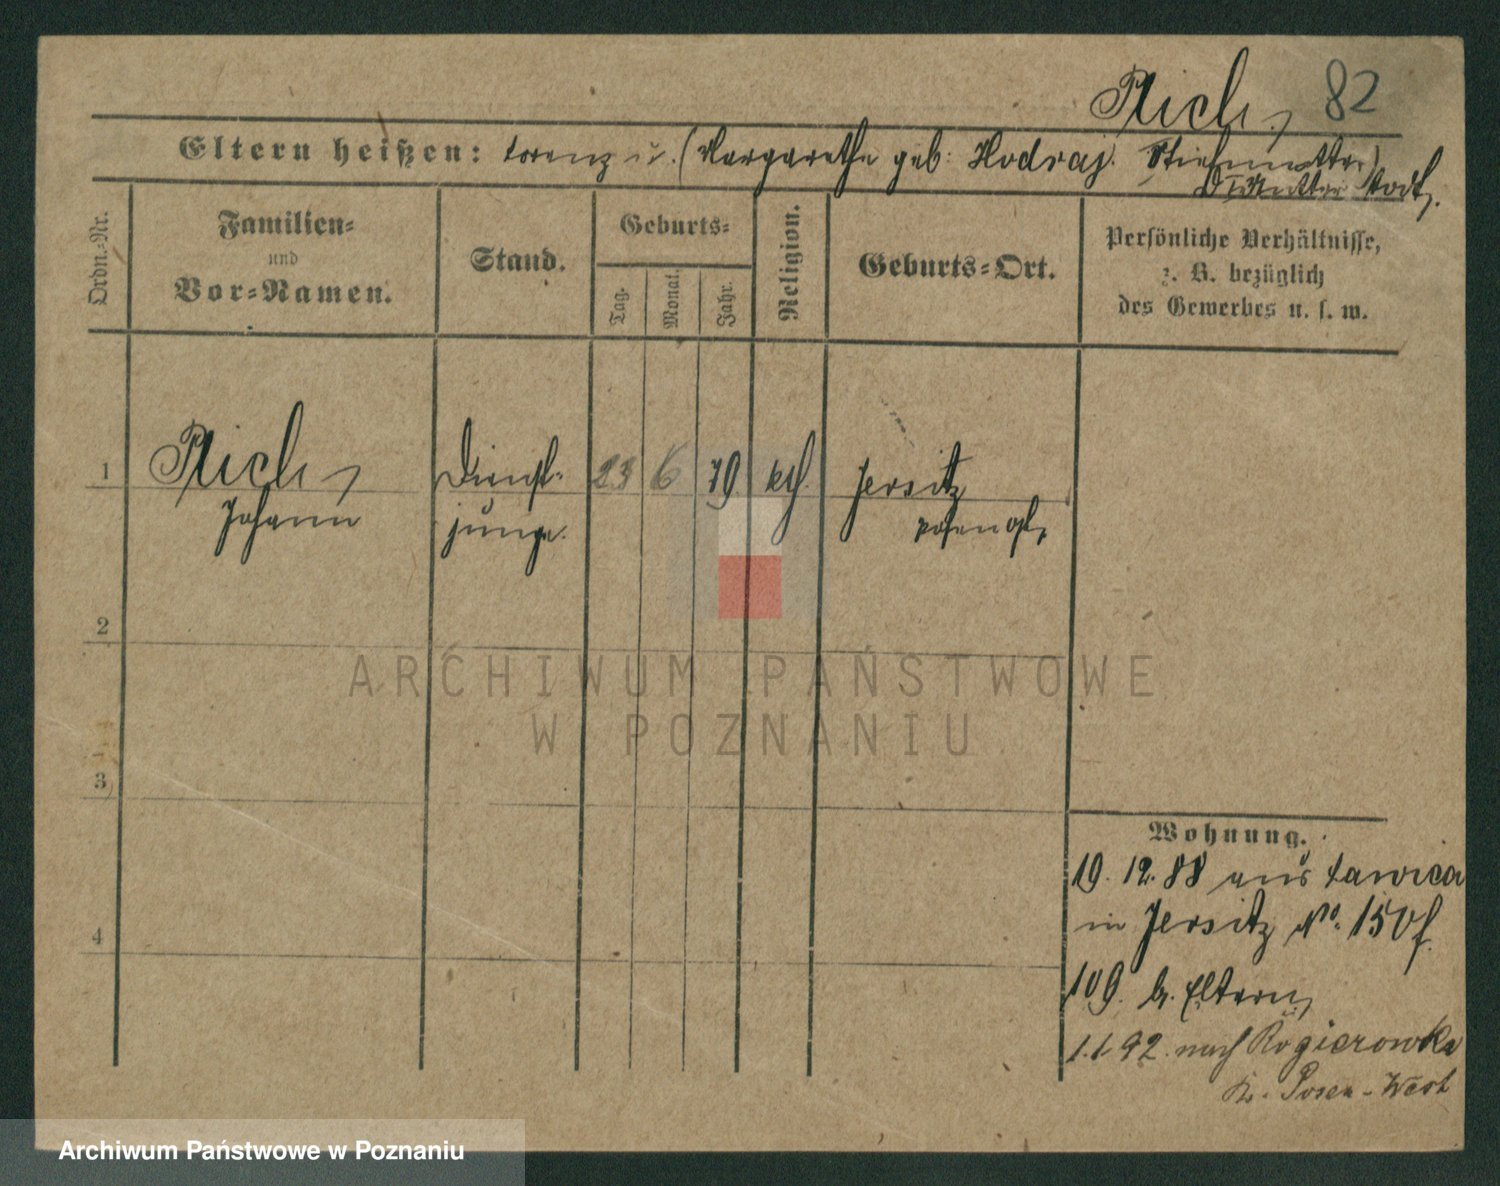 82
Eltern heißen: Lorenz u. (Margarethe geb: Hodraj. Stiefmutter)
Mutter todt.
Ordn.-Nr.
Familien-
und
Vor-Namen.
Stand.
Geburts-
Tag.
Monat.
Jahr.
Religion.
Geburts-Ort.
Persönliche Verhältnisse,
z. B. bezüglich
des Gewerbes u. s. w.
1
Johann
Dienst-
junge.
23 6 79 kth.
Jersitz
2
3
4
Wohnung.
19. 12. 88 aus Lawica
in Jersitz No. 150f.
109. b. Eltern
1.1.92. nach Rogierowka
Kr. Posen-West
ARCHIWUM PAŃSTWOWE
W POZNANIU
Archiwum Państwowe w Poznaniu